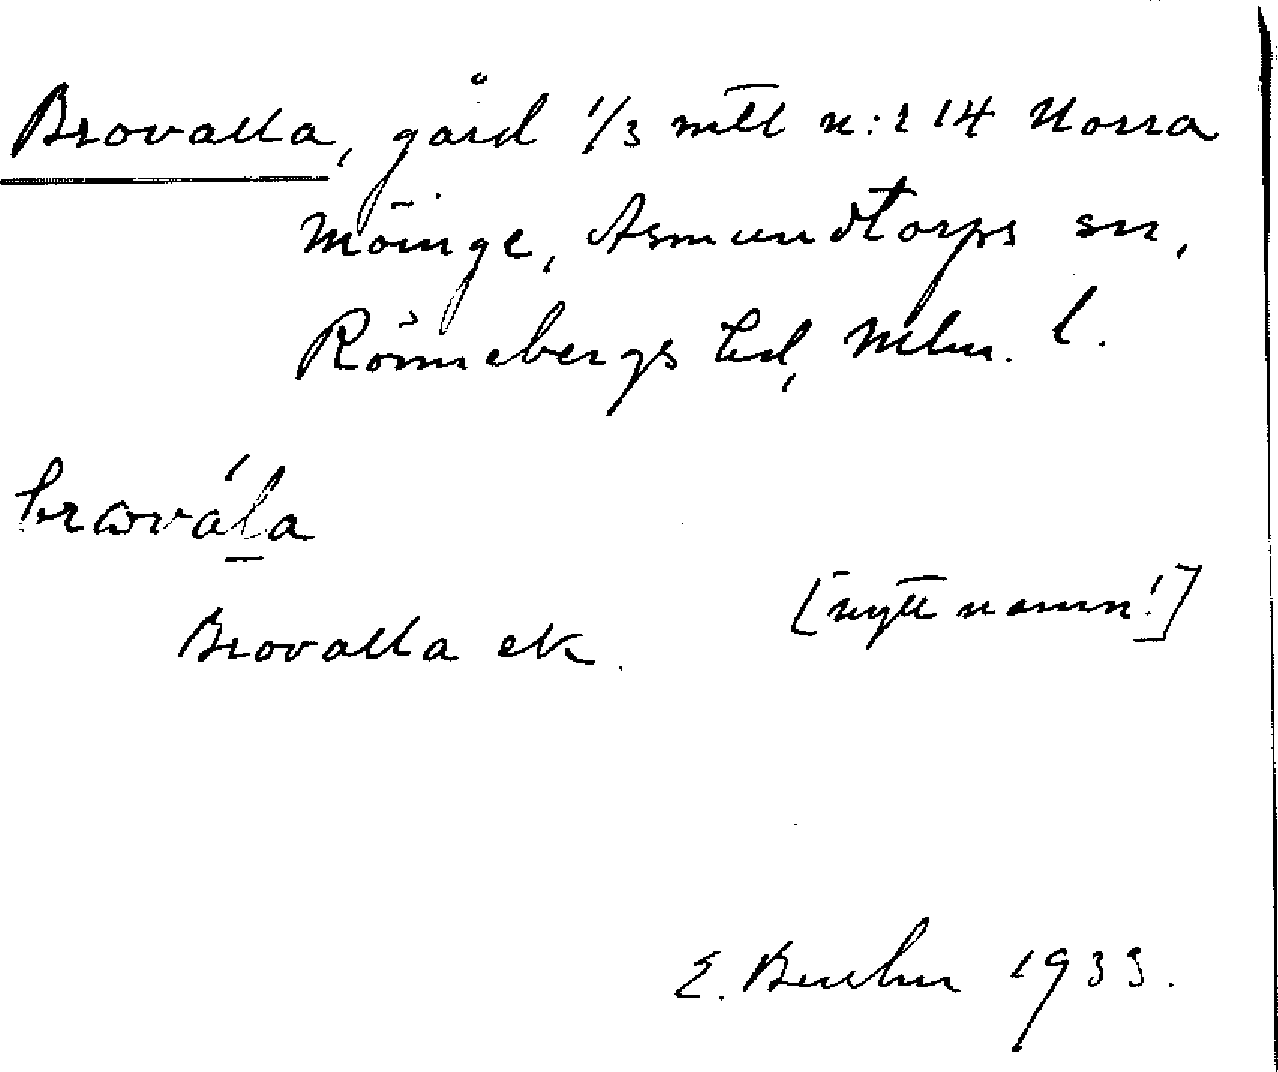 Brovalla, gård 1/3 mtl n:r 14 Norra
Möinge, Asmundtorps sn,
Rönnebergs hd, Mlm. l.
brωvála
Brovalla ek.
[nytt namn!]
E. 1933.